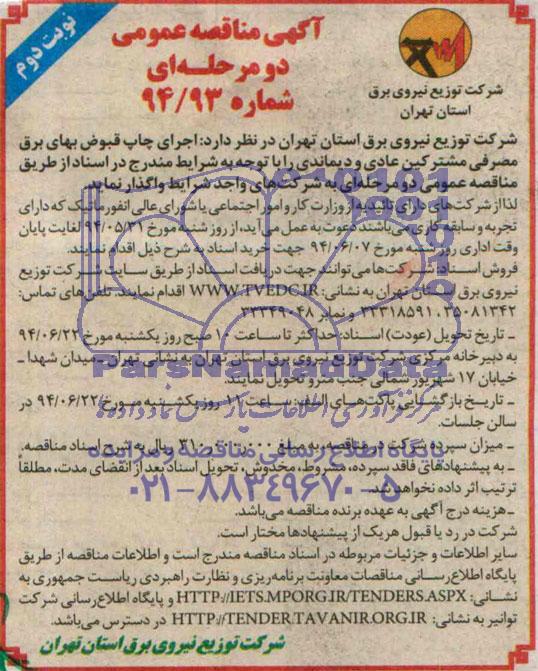 نوبت دوم
آگهی مناقصه عمومی
دو مرحله‌ای
شماره ۹۴/۹۳
شرکت توزیع نیروی برق
استان تهران
شرکت توزیع نیروی برق استان تهران در نظر دارد: اجرای چاپ قبوض بهای برق
مصرفی مشترکین عادی و دیماندی را با توجه به شرایط مندرج در اسناد از طریق
مناقصه عمومی دو مرحله‌ای به شرکت‌های واجد شرایط واگذار نماید.
لذا از شرکت‌های دارای تائیدیه از وزارت کار و امور اجتماعی یا شورای عالی انفورماتیک که دارای
تجربه و سابقه کاری می‌باشند دعوت به عمل می‌آید، از روز شنبه مورخ ۹۴/۰۵/۳۱ لغایت پایان
وقت اداری روز شنبه مورخ ۹۴/۰۶/۰۷ جهت خرید اسناد به شرح ذیل اقدام نمایند.
فروش اسناد: شرکت‌ها می‌توانند جهت دریافت اسناد از طریق سایت شرکت توزیع
نیروی برق استان تهران به نشانی: WWW.TVEDC.IR اقدام نمایند. تلفن‌های تماس:
۳۵۰۸۱۳۴۲، ۳۳۳۱۸۵۹۱ و نمابر ۳۳۳۴۹۰۴۸
ـ تاریخ تحویل (عودت) اسناد: حداکثر تا ساعت ۱۰ صبح روز یکشنبه مورخ ۹۴/۰۶/۲۲
به دبیرخانه مرکزی شرکت توزیع نیروی برق استان تهران به نشانی تهران ـ میدان شهدا ـ
خیابان ۱۷ شهریور شمالی جنب مترو تحویل نمایند.
ـ تاریخ بازگشایی پاکت‌های الف،ب: ساعت ۱۱ روز یکشنبه مورخ ۹۴/۰۶/۲۲ در
سالن جلسات.
ـ میزان سپرده شرکت در مناقصه، به مبلغ ریال به شرح اسناد مناقصه.
ـ به پیشنهادهای فاقد سپرده، مشروط، مخدوش، تحویل اسناد بعد از انقضای مدت، مطلقاً
ترتیب اثر داده نخواهد شد.
ـ هزینه درج آگهی به عهده برنده مناقصه می‌باشد.
شرکت در رد یا قبول هر یک از پیشنهادها مختار است.
سایر اطلاعات و جزئیات مربوطه در اسناد مناقصه مندرج است و اطلاعات مناقصه از طریق
پایگاه اطلاع‌رسانی مناقصات معاونت برنامه‌ریزی و نظارت راهبردی ریاست جمهوری به
نشانی: HTTP://IETS.MPORG.IR/TENDERS.ASPX و پایگاه اطلاع‌رسانی شرکت
توانیر به نشانی: HTTP://TENDER.TAVANIR.ORG.IR در دسترس می‌باشد.
شرکت توزیع نیروی برق استان تهران
ParsNamadData
مرکز فرآوری اطلاعات پارس نماد داده‌ها
پایگاه اطلاع رسانی مناقصه و مزایده
۰۲۱-۸۸۳۴۹۶۷۰-۵